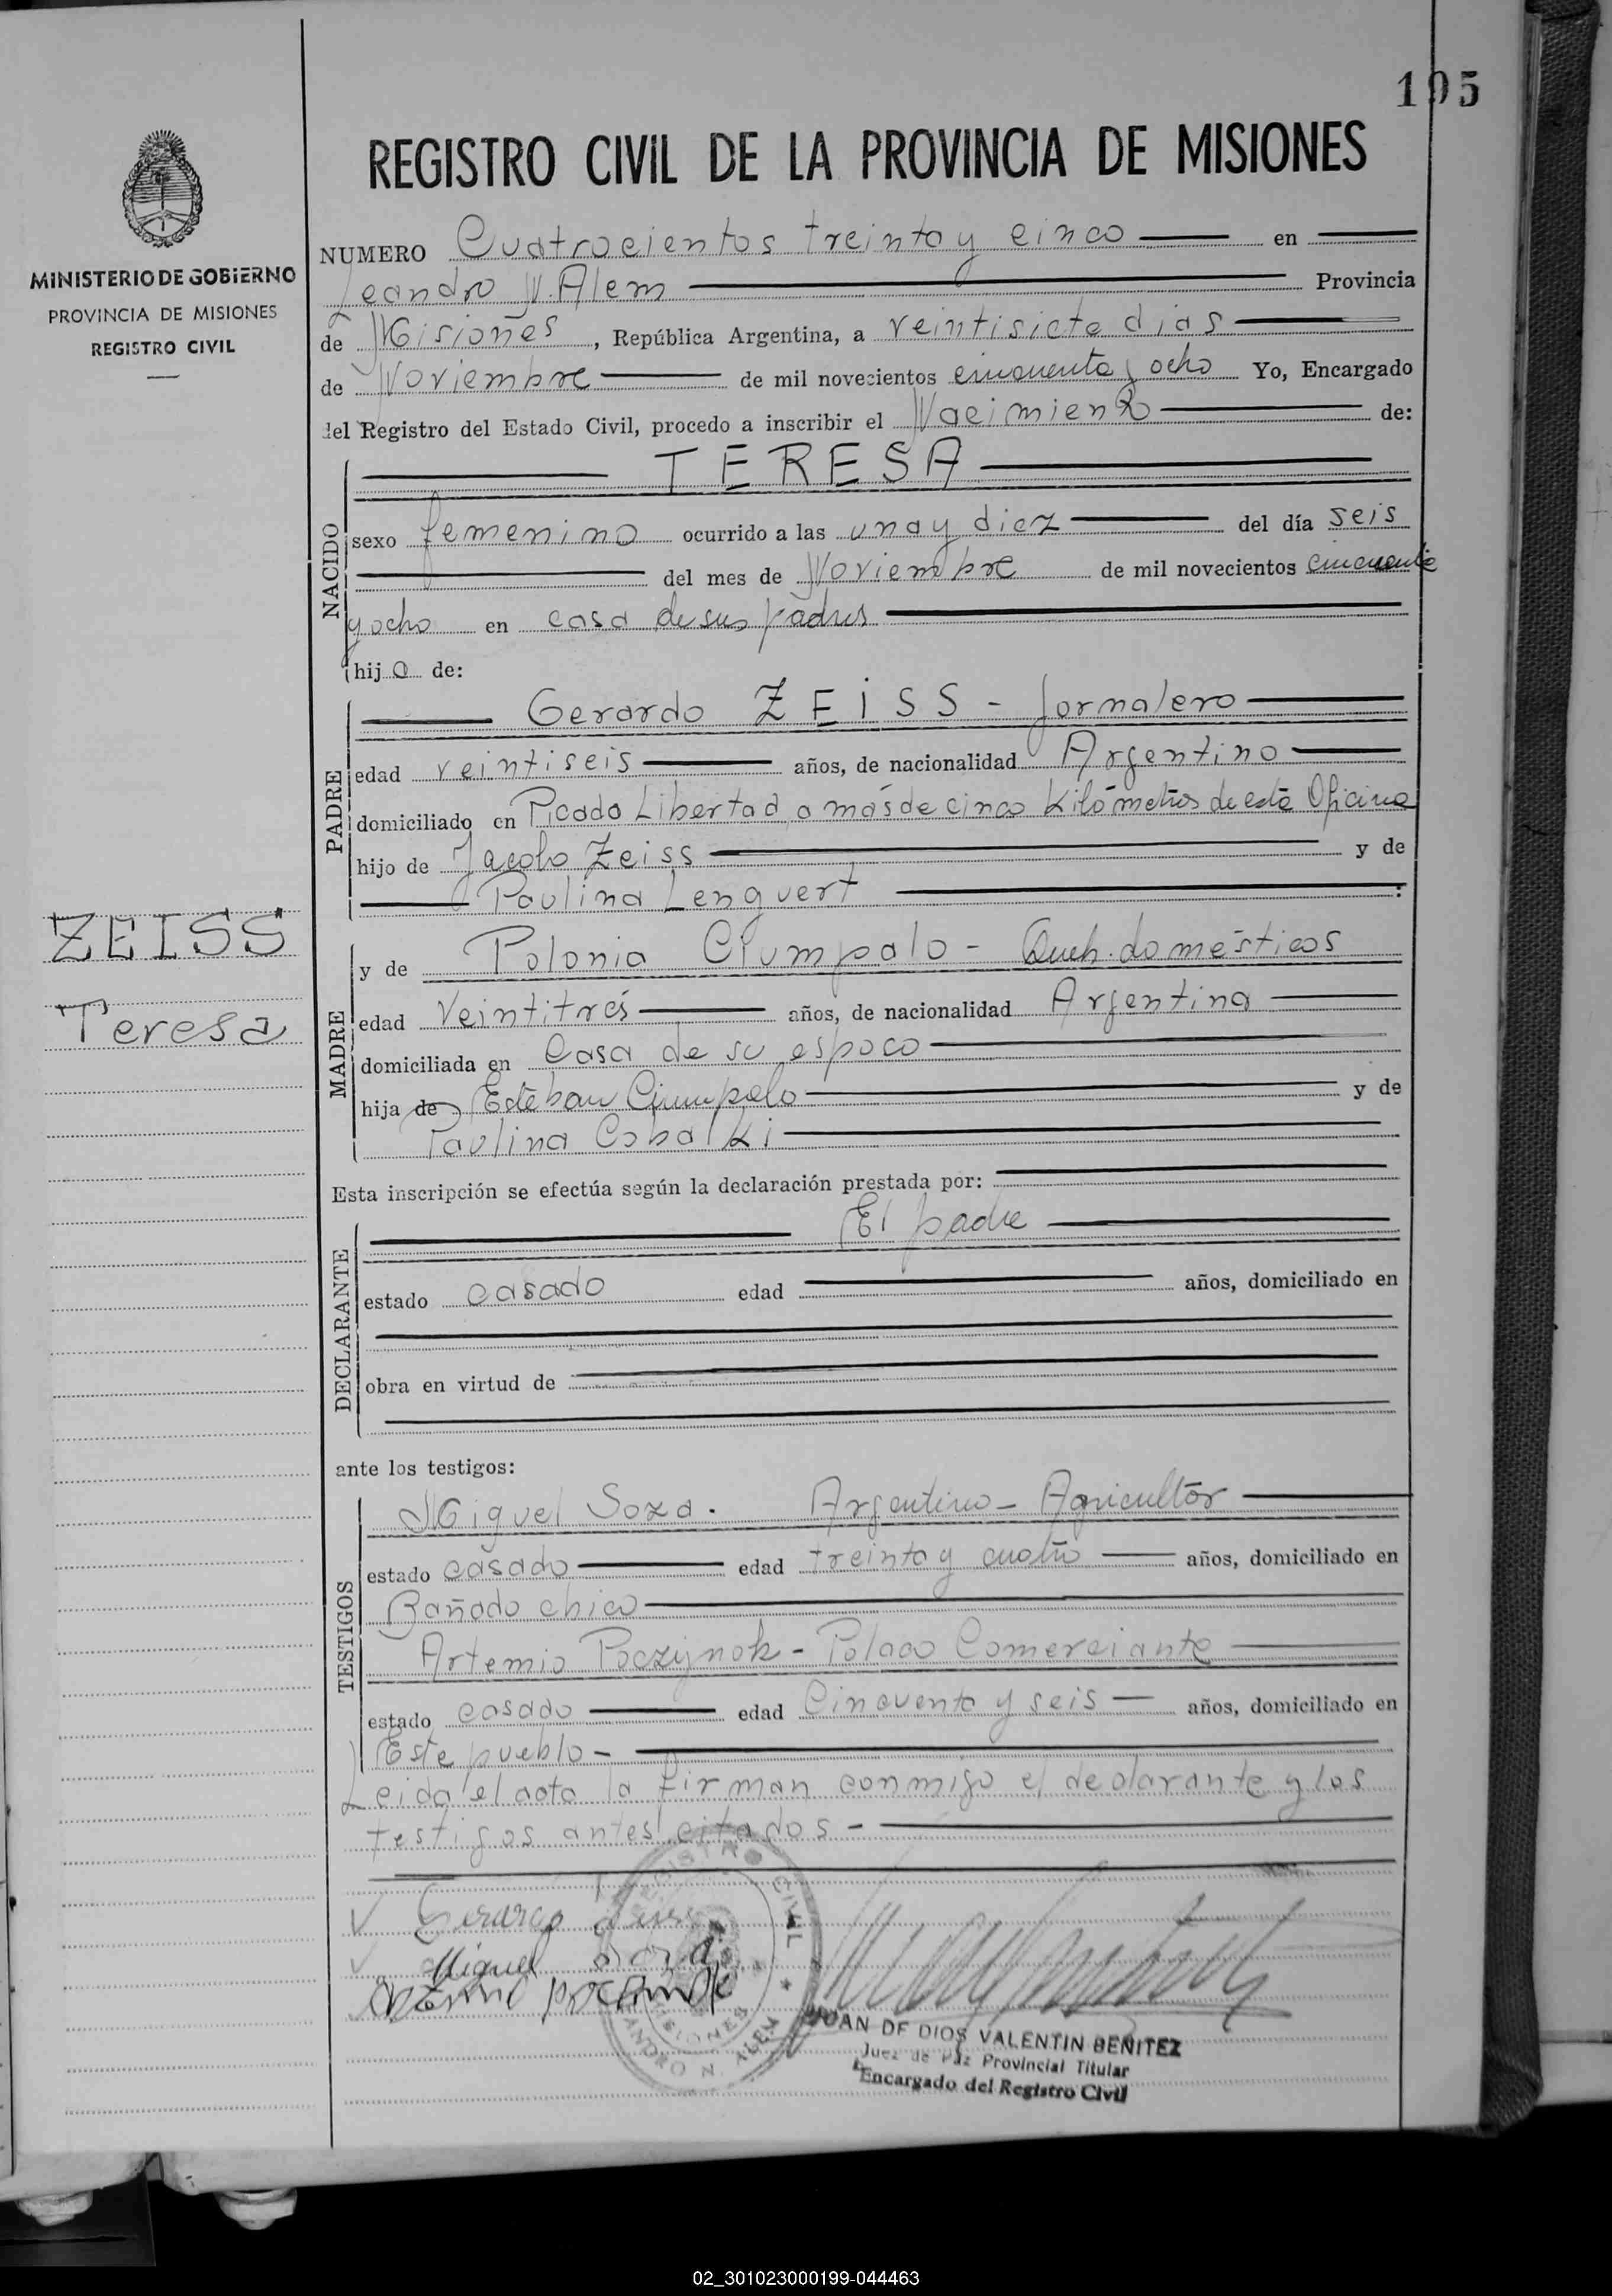 195
REGISTRO CIVIL DE LA PROVINCIA DE MISIONES
MINISTERIO DE GOBIERNO
PROVINCIA DE MISIONES
REGISTRO CIVIL
NUMERO Cuatrocientos treinta y cinco en
Leandro N. Alem Provincia
de Misiones, República Argentina, a veintisiete dias
de Noviembre de mil novecientos cincuenta y ocho Yo, Encargado
del Registro del Estado Civil, procedo a inscribir el Nacimiento de:
NACIDO
TERESA
sexo femenino ocurrido a las una y diez del día seis
del mes de Noviembre de mil novecientos cincuenta
y ocho en casa de sus padres
hija de:
PADRE
Gerardo ZEISS - Jornalero
edad veintiseis años, de nacionalidad Argentino
domiciliado en Picada Libertad a más de cinco Kilómetros de esta Oficina
hijo de Jacobo Zeiss y de
Paulina Lenguert :
ZEISS
Teresa
MADRE
y de Polonia Ciumpalo - Queh. domésticos
edad Veintitrés años, de nacionalidad Argentina
domiciliada en Casa de su esposo
hija de Esteban Ciumpalo y de
Paulina Cobalki
Esta inscripción se efectúa según la declaración prestada por:
DECLARANTE
El padre
estado casado edad años, domiciliado en
obra en virtud de
ante los testigos:
TESTIGOS
Miguel Soza. Argentino - Agricultor
estado casado edad treinta y cuatro años, domiciliado en
Bañado chico
Artemio Poczynok - Polaco Comerciante
estado casado edad Cincuenta y seis años, domiciliado en
Este pueblo -
Leida el acta la firman conmigo el declarante y los
testigos antes citados -
REGISTRO CIVIL
MISIONES
LEANDRO N. ALEM
Miguel Soza
JUAN DE DIOS VALENTIN BENITEZ
Juez de Paz Provincial Titular
Encargado del Registro Civil
02_301023000199-044463